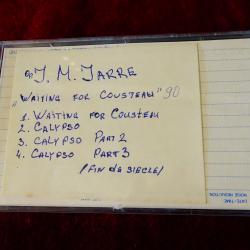 J. M. JARRE
"WAITING FOR COUSTEAU" 90
1. WAITING FOR COUSTEAU
2. CALYPSO
3. CALYPSO PART 2
4. CALYPSO PART 3
/FIN DE SIECLE/
DATE-TIME
NOISE REDUCTION